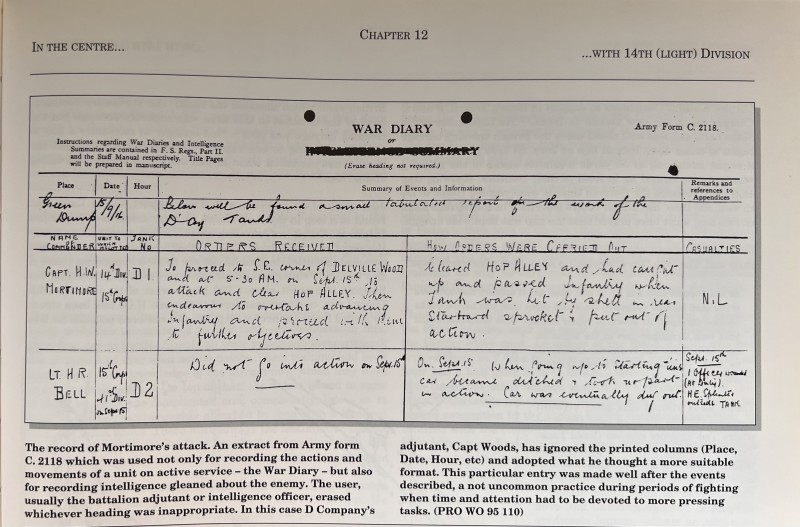 CHAPTER 12
IN THE CENTRE...
...WITH 14TH (LIGHT) DIVISION
WAR DIARY
or
INTELLIGENCE SUMMARY
(Erase heading not required.)
Army Form C. 2118.
Instructions regarding War Diaries and Intelligence
Summaries are contained in F. S. Regs., Part II.
and the Staff Manual respectively. Title Pages
will be prepared in manuscript.
Place
Date
Hour
Summary of Events and Information
Remarks and
references to
Appendices
Green
Dump
15/9/16
Below will be found a small tabulated report on the work of the
D Coy Tanks
NAME
OF
COMMANDER
UNIT TO
WHICH
ALLOTTED
TANK
NO
ORDERS RECEIVED
HOW ORDERS WERE CARRIED OUT
CASUALTIES
CAPT. H.W.
MORTIMORE
14th Div.
15th Corps
D1
To proceed to S.E. corner of DELVILLE WOOD
and at 5-30 A.M. on Sept. 15th to
attack and clear HOP ALLEY. Then
endeavour to overtake advancing
Infantry and proceed with them
to further objectives.
Cleared HOP ALLEY and had caught
up and passed Infantry when
Tank was hit by shell in rear
Starboard sprocket & put out of
action.
NIL
LT. H.R.
BELL
15th Corps
41st Div.
on Sept 15
D2
Did not go into action on Sept. 15th
On Sept. 15 when going up to starting
car became ditched & took no part
in action. Car was eventually dug out.
Sept 15th
1 Officer wounded
H.E. Splinter
outside TANK
The record of Mortimore's attack. An extract from Army form
C. 2118 which was used not only for recording the actions and
movements of a unit on active service – the War Diary – but also
for recording intelligence gleaned about the enemy. The user,
usually the battalion adjutant or intelligence officer, erased
whichever heading was inappropriate. In this case D Company's
adjutant, Capt Woods, has ignored the printed columns (Place,
Date, Hour, etc) and adopted what he thought a more suitable
format. This particular entry was made well after the events
described, a not uncommon practice during periods of fighting
when time and attention had to be devoted to more pressing
tasks. (PRO WO 95 110)